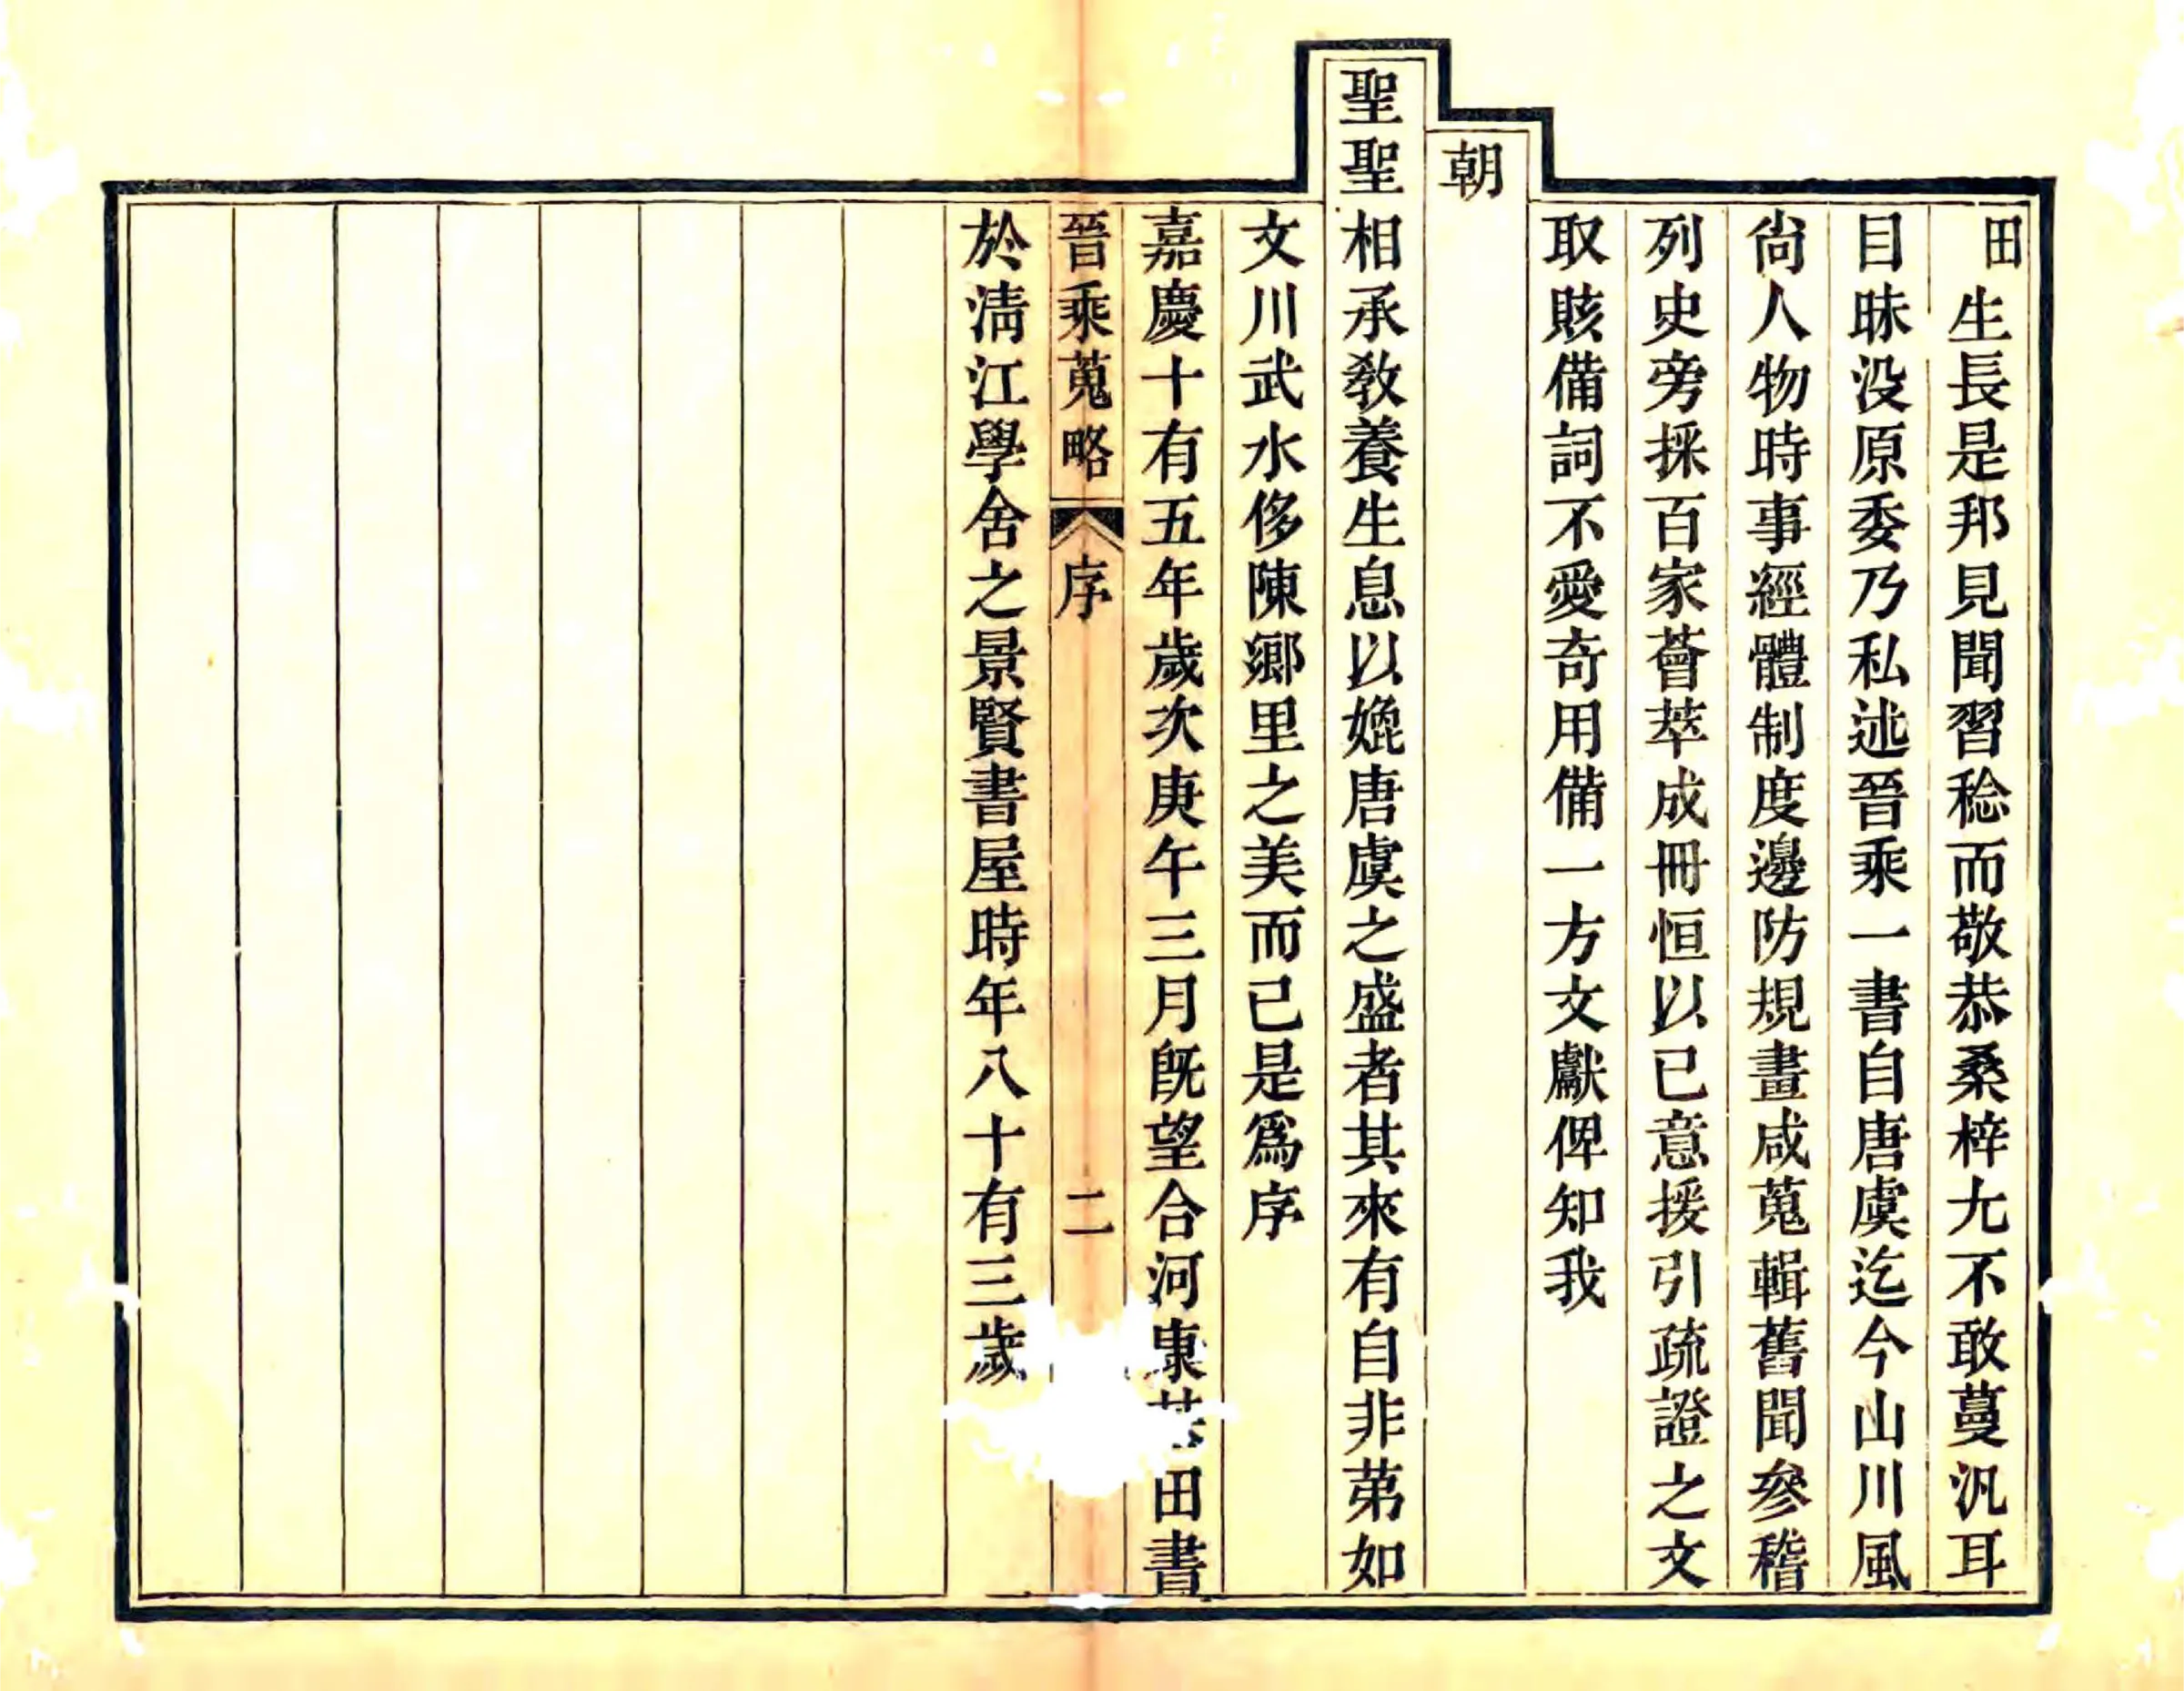 田生長是邦見聞習稔而敬恭桑梓尢不敢蔓汎耳
目昧没原委乃私述晉乘一書自唐虞迄今山川風
尙人物時事經體制度邊防規畫咸蒐輯舊聞參稽
列史旁採百家薈萃成冊恒以已意援引疏證之文
取賅備詞不愛奇用備一方文獻俾知我
朝
聖聖相承敎養生息以娩唐虞之盛者其來有自非苐如
文川武水侈陳鄉里之美而已是爲序
嘉慶十有五年歲次庚午三月旣望合河康田書
晉乘蒐略 序 二
於淸江學舍之景賢書屋時年八十有三歲